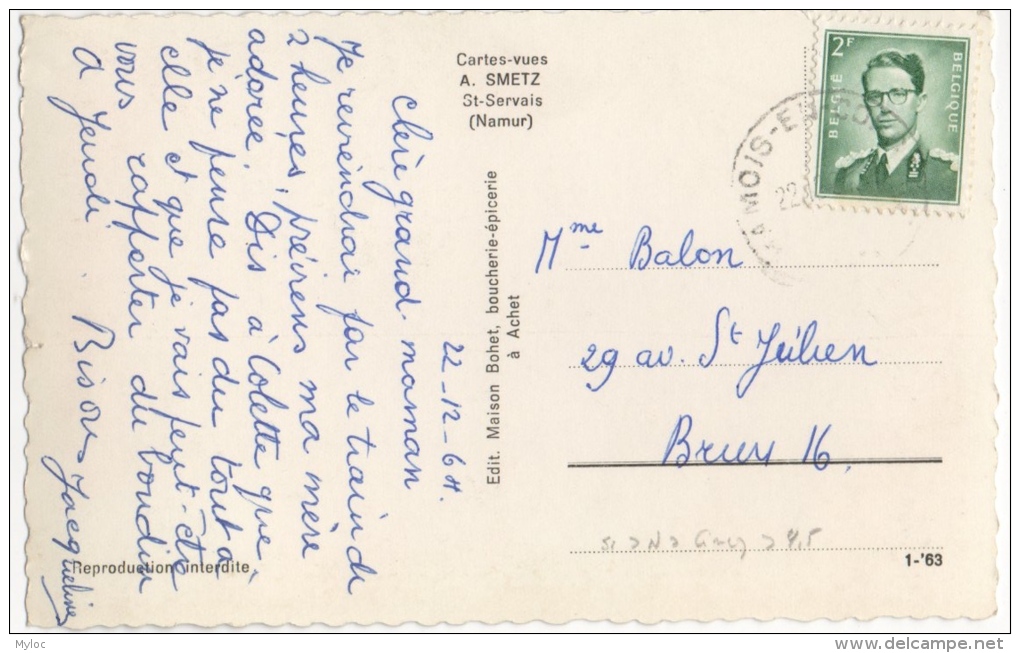 Cartes-vues
A. SMETZ
St-Servais
(Namur)
22-12-64.
Chère grand maman
Je reviendrai par le train de
2 heures, préviens ma mère
adorée. Dis à Colette que
je ne pense pas du tout à
elle et que je vais peut-être
vous rapporter du boudin
à Jeudi. Bisous Jacqueline
Edit. Maison Bohet, boucherie-épicerie
à Achet
2F
BELGIË
BELGIQUE
22
Mme Balon
29 av. St Julien
Brux 16.
Reproduction interdite
1-'63
Myloc
delcampe.net